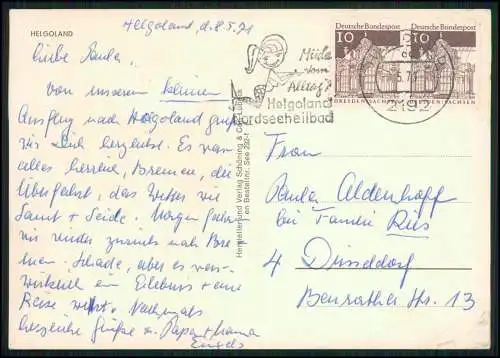 HELGOLAND
Helgoland, d. 8.5.71
Liebe Paula,
von unserem kleinen
Ausflug nach Helgoland grüßen
wir Dich herzlichst. Es war
alles herrlich, Bremen, die
Überfahrt, das Wetter wie
Samt + Seide. Morgen fahren
wir wieder zurück nach Bre
men. Schade, aber es war
wirklich ein Erlebnis + eine
Reise wert. Nochmals
herzliche Grüße v. Papa + Mama
Engels
Hersteller und Verlag Schöning &
Müde
vom
Alltag?
Helgoland
Nordseeheilbad
Deutsche Bundespost
10
DRESDEN/SACHSEN
Deutsche Bundespost
10
DRESDEN/SACHSEN
2192
Frau
Paula Aldenhoff
bei Familie Ries
4 Düsseldorf
Benrather Str. 13